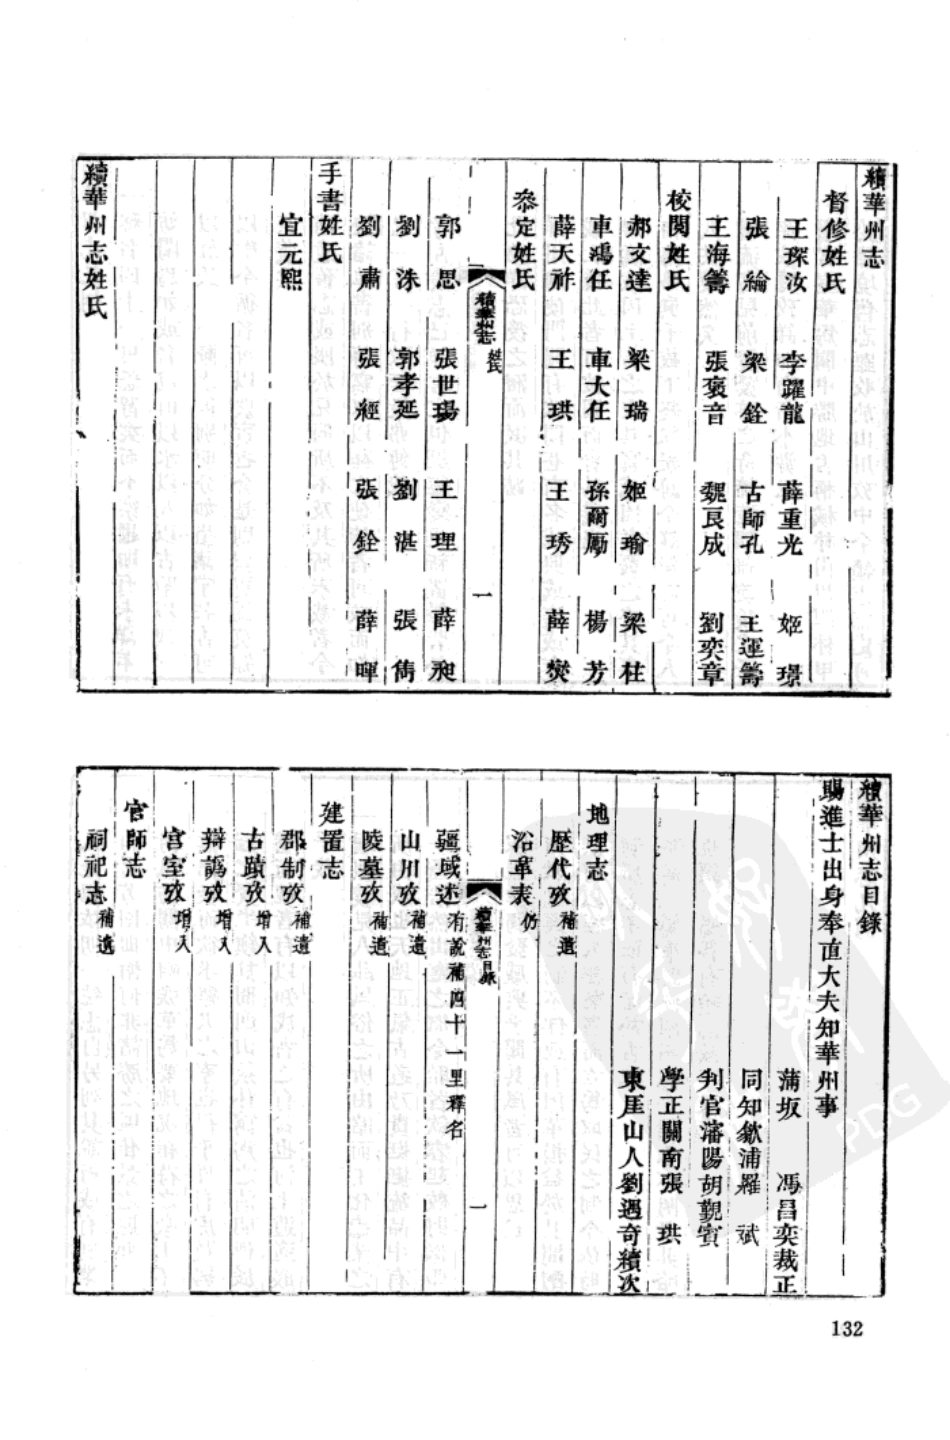 續華州志
督修姓氏
王琛汝　李躍龍　薛重光　姬　璟
張　綸　梁　銓　古師孔　王運籌
王海籌　張褒音　魏良成　劉奕章
校閱姓氏
郝文達　梁　瑞　姬　瑜　梁　柱
車鴻任　車大任　孫爾勵　楊　芳
薛天祚　王　珙　王　琇　薛　爕
叅定姓氏
續華州志　姓氏　一
郭　思　張世瑒　王　理　薛　昶
劉　洙　郭孝延　劉　湛　張　儁
劉　肅　張　經　張　銓　薛　暉
手書姓氏
宜元熙
續華州志姓氏
續華州志目錄
賜進士出身奉直大夫知華州事
蒲坂　馮昌奕裁正
同知歙浦羅　斌
判官瀋陽胡觀賓
學正關南張　珙
東厓山人劉遇奇續次
地理志
歷代攷補遺
沿革表仍
續華州志目錄　一
疆域述有說補四十一里釋名
山川攷補遺
陵墓攷補遺
建置志
郡制攷補遺
古蹟攷增入
辯譌攷增入
宮室攷增入
官師志
祠祀志補遺
132